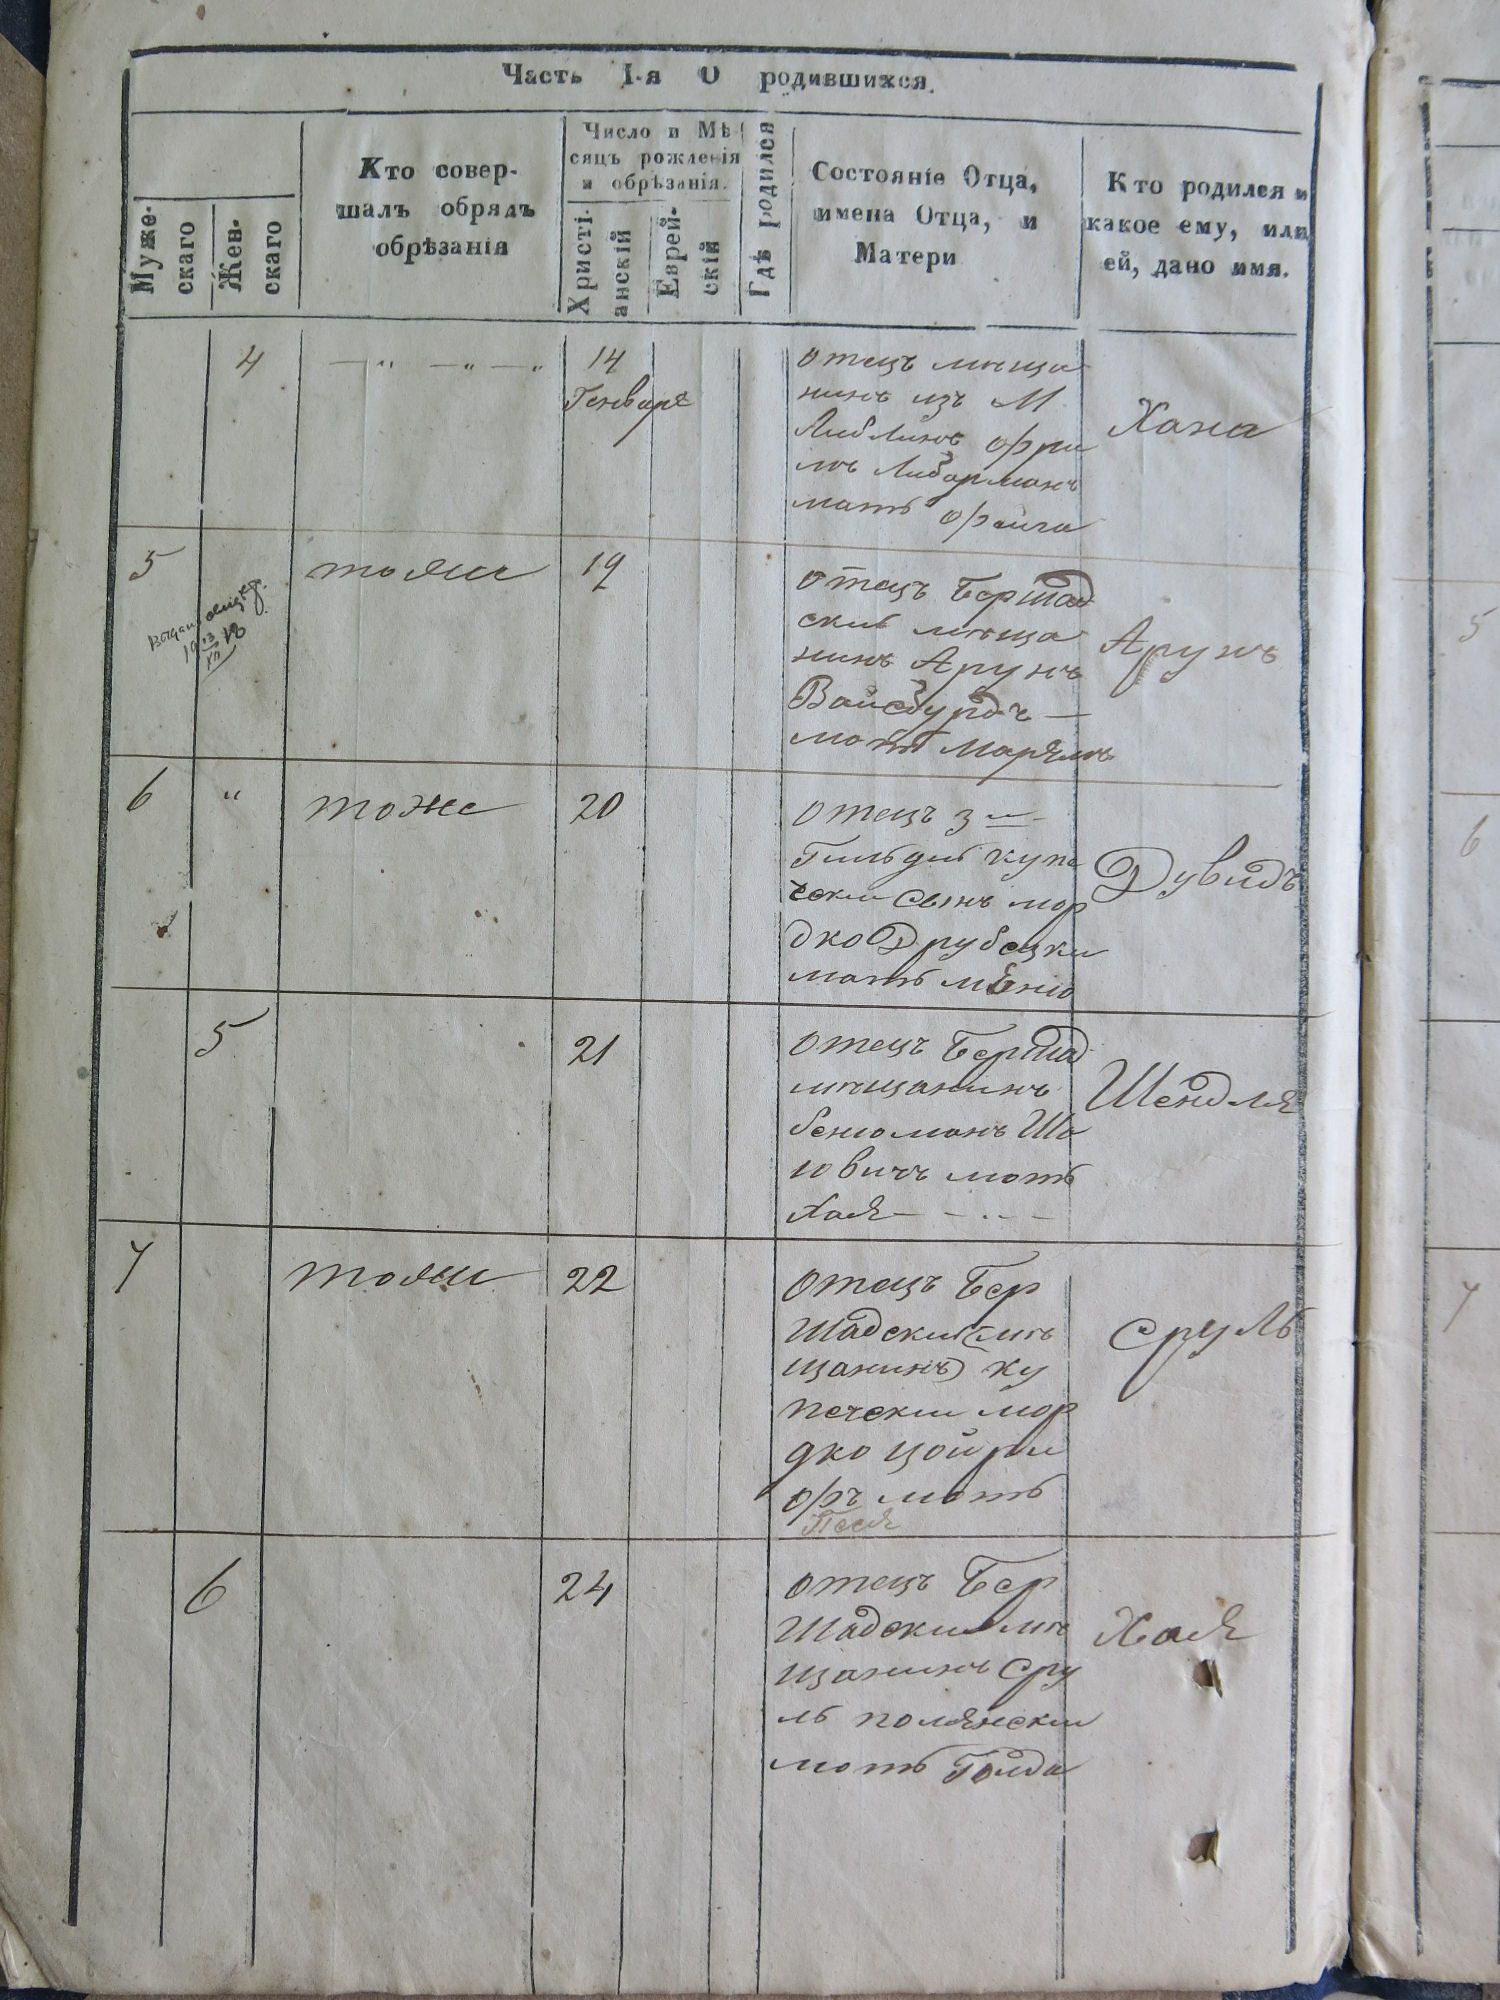 Часть I-я О родившихся.
Муже-
скаго
Жен-
скаго
Кто совер-
шалъ обрядъ
обрѣзанія
Число и Мѣ-
сяцъ рожденія
и обрѣзанія.
Христі-
анскій
Еврей-
скій
Гдѣ родился
Состояніе Отца,
имена Отца, и
Матери
Кто родился и
какое ему, или
ей, дано имя.
4
14
Генваря
отецъ мѣща
нинъ изъ М
мать
Хана
5
тоже
19
отецъ Бершад
ский мѣща
нинъ Арунъ
Вайсбурдъ —
мать Марямъ
Арунъ
6 "
тоже
20
отецъ 3 й
Гильдий купе
чески сынъ мор
дко Друбецки
мать
Дувидъ
5
21
отецъ Бершад
мѣщанинъ
бениоманъ Шо
мать
Хая
Шендля
7
тоже
22
отецъ Бер
шадски (мѣ
щанинъ) ку
печески мор
дко
мать
Песя
Сруль
6
24
отецъ Бер
шадски мѣ
щанинъ Сру
ль полянски
мать Голда
Хая
5
6
7